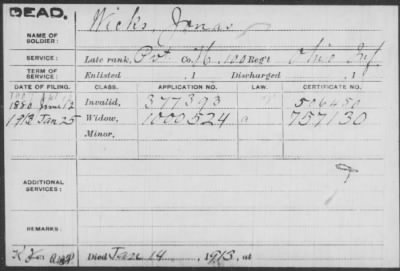 DEAD.
NAME OF SOLDIER: Wicks, Jonas
SERVICE: Late rank, Pvt Co. H, 100 Reg't Ohio Inf
TERM OF SERVICE: Enlisted , 1 Discharged , 1
DATE OF FILING. CLASS. APPLICATION NO. LAW. CERTIFICATE NO.
1880 June 12 Invalid, 377393 506450
1913 Jan 25 Widow, 1000524 a 757130
Minor,
ADDITIONAL SERVICES:
REMARKS:
Died Jan 14, 1913, at